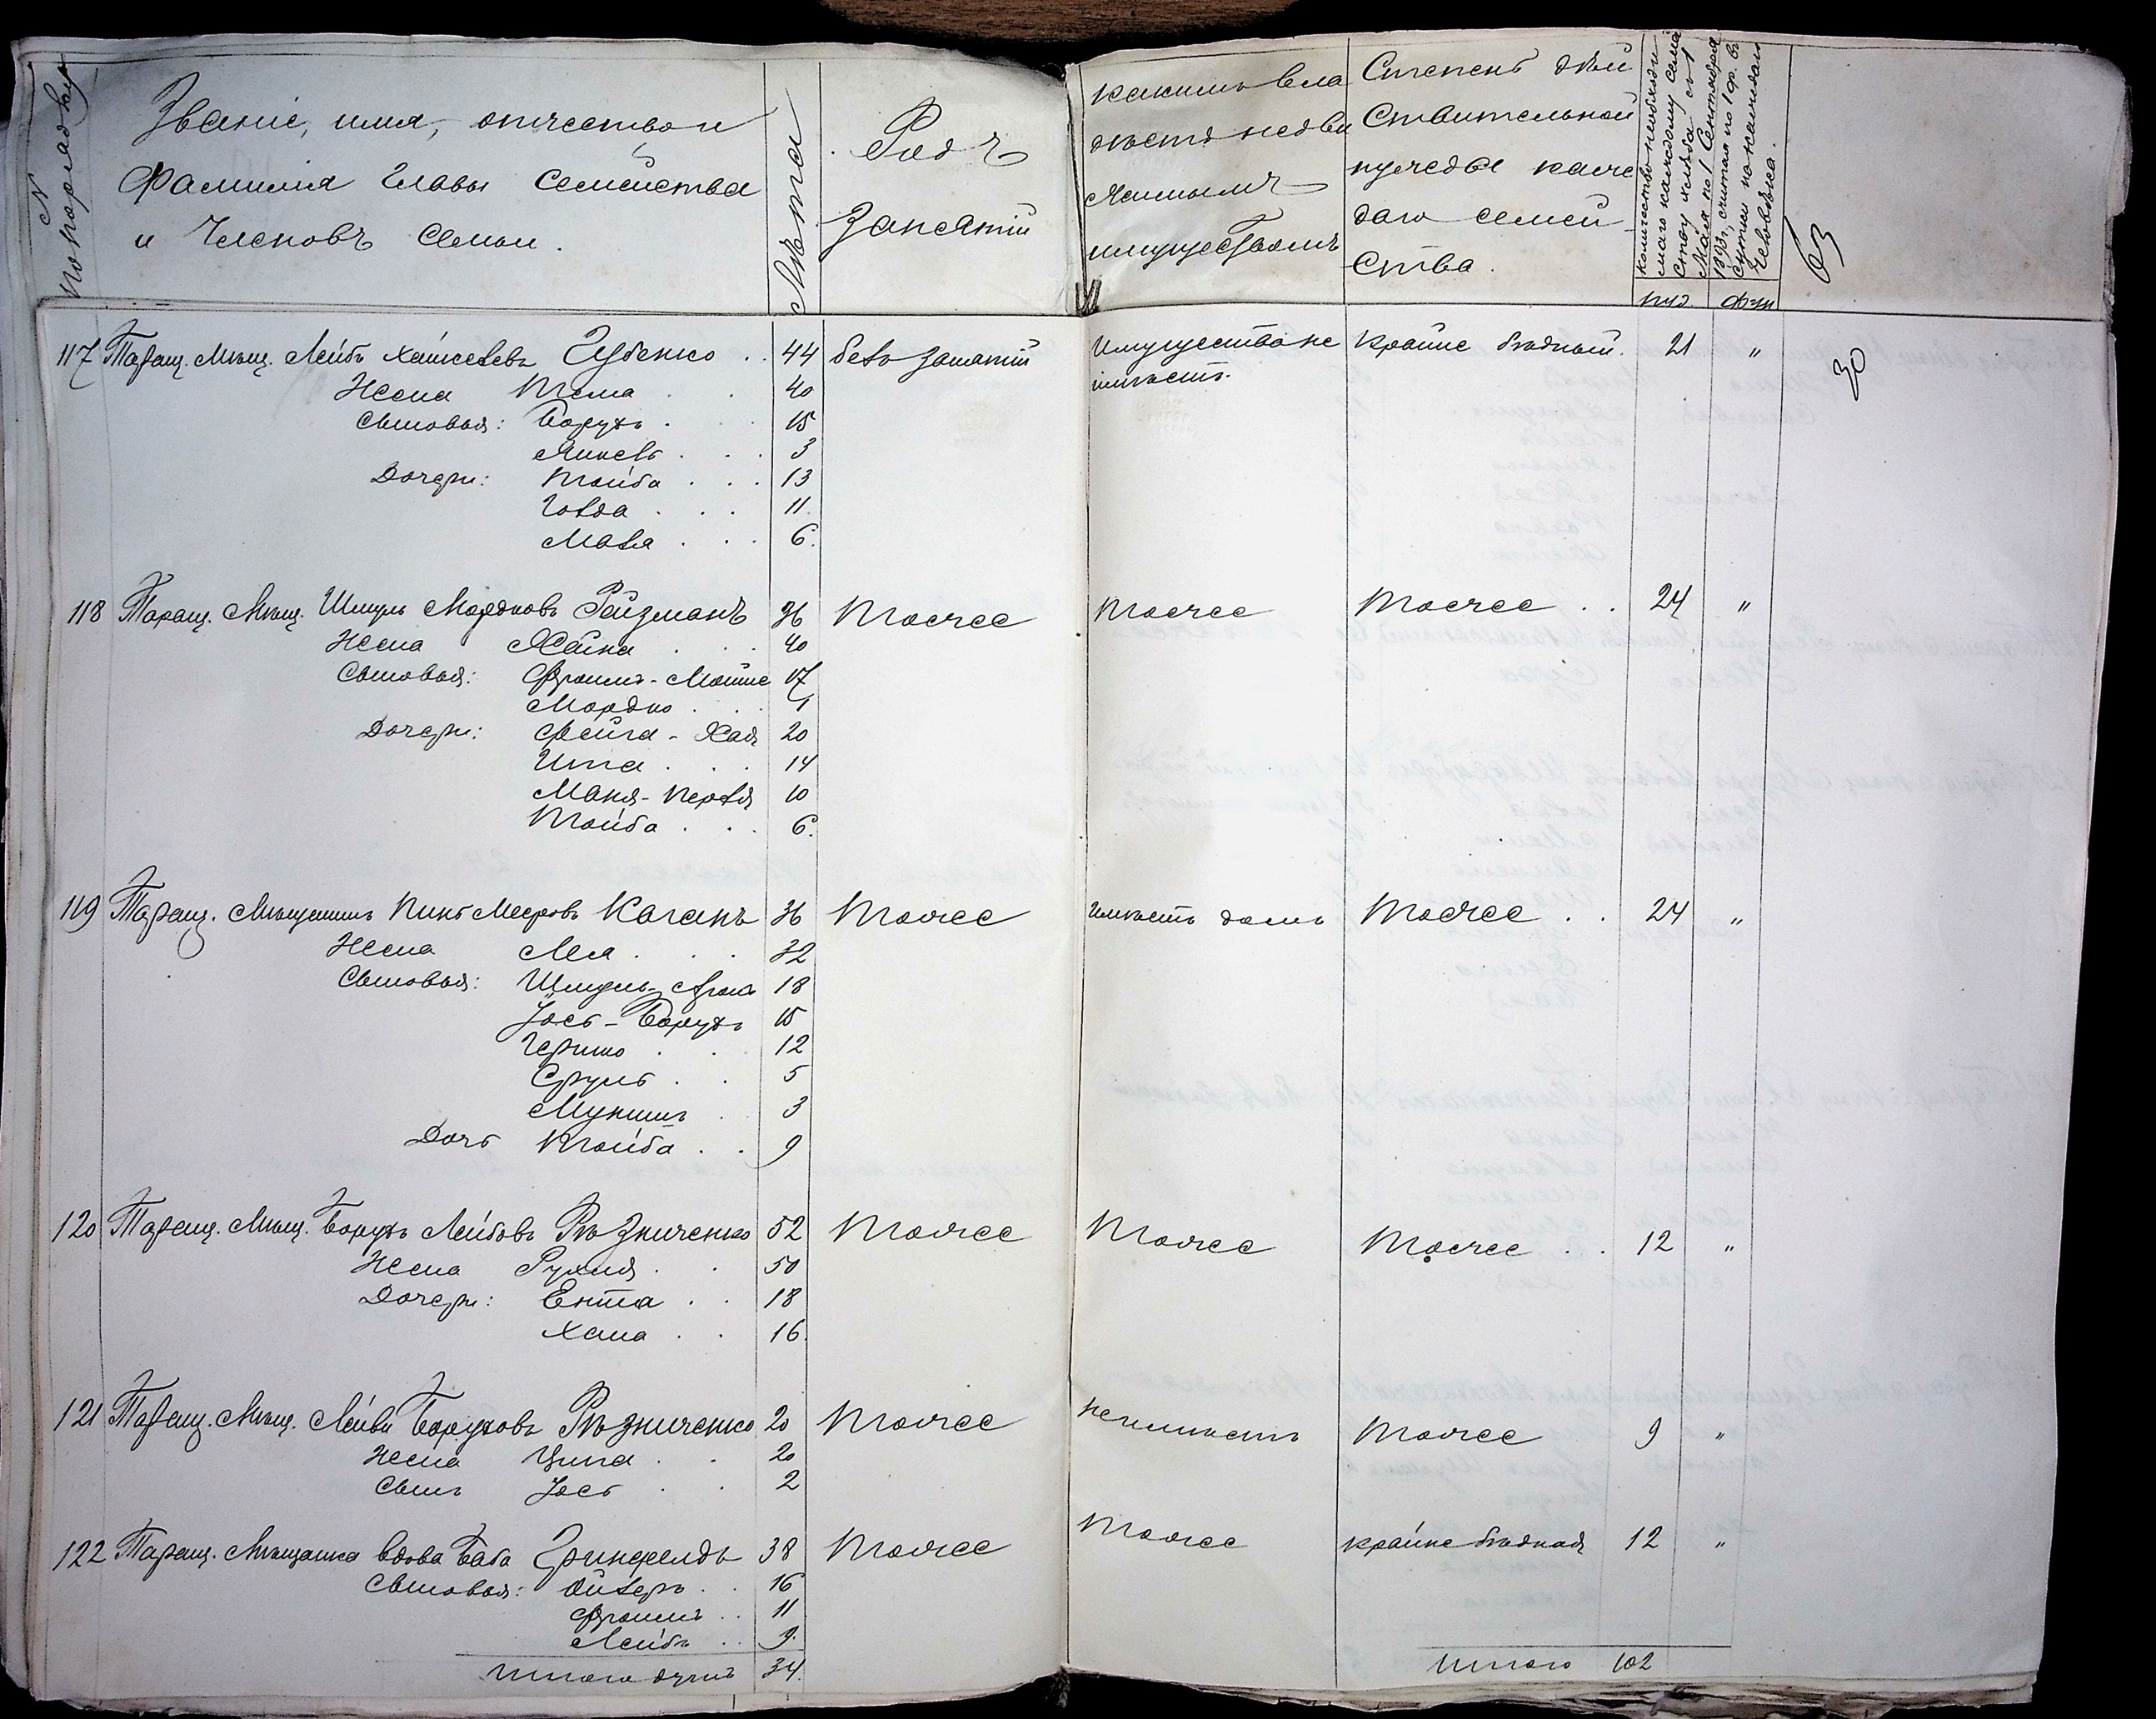 № по порядку
Званіе, имя, отчество и
фамилія главы семейства
и членовъ семьи.
Лѣта
Родъ
занятій
какимъ вла
дѣетъ недви
жимымъ
имуществомъ
Степень дѣй
ствительной
нужды каж
даго семей
ства.
Количество необходи
маго каждому семей
ству хлѣба съ 1
Мая по 1 Сентября
1893 г., считая по 1 ф. въ
сутки на каждаго
человѣка.
пуд. фун
63
30
117 Таращ. Мѣщ. Лейбъ Губенко . . 44 безъ занятій Имущества не крайне бѣдный. 21 "
имѣетъ.
Жена . . 40
Сыновья: Борухъ . . . 15
Янкель . . . 3
Дочери: Тойба . . . 13
Голда . . . 11.
Маля . . . 6.
118 Таращ. Мѣщ. Шмуль Мордковъ Ройзманъ 36 Тоже Тоже Тоже . . 24 "
Жена Хайка . . . 40
Сыновья: Фроимъ-Мойше 17
Мордко . . . 1
Дочери: Фейга-Хая 20
Ита . . . 14
Маня-Перля 10
Тойба . . . 6.
119 Таращ. Мѣщанинъ Мееровъ Коганъ 36 Тоже Имѣетъ домъ Тоже . . 24 "
Жена Лея . . . 32
Сыновья: Шмуль- 18
Іось-Борухъ 15
Гершко . . 12
Сруль . . 5
3
Дочь Тойба . . 9
120 Таращ. Мѣщ. Борухъ Лейбовъ Рѣзниченко 52 Тоже Тоже Тоже . . 12 "
Жена Рухля . . 50
Дочери: Ента . . 18
Хана . . 16.
121 Таращ. Мѣщ. Боруховъ Рѣзниченко 20 Тоже не имѣетъ Тоже 9 "
Жена Ципа . . 20
Сынъ Іось . . 2
122 Таращ. Мѣщанка вдова Баба Гринфелдъ 38 Тоже Тоже крайне бѣдная 12 "
Сыновья: Ойзеръ . . 16
Фроимъ . . 11
Лейбъ . . 9.
Итого душъ 34.
Итого 102